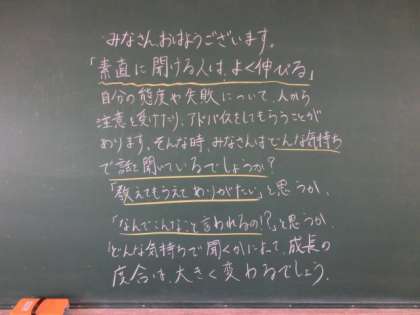 みなさん、おはようございます。
「素直に聞ける人は、よく伸びる」
自分の態度や失敗について、人から
注意を受けたり、アドバイスをしてもらうことが
あります。そんな時、みなさんはどんな気持ち
で話を聞いているでしょうか?
「教えてもらえてありがたい」と思うか、
「なんでこんなこと言われるの!?」と思うか、
どんな気持ちで聞くかによって、成長の
度合は、大きく変わるでしょう。